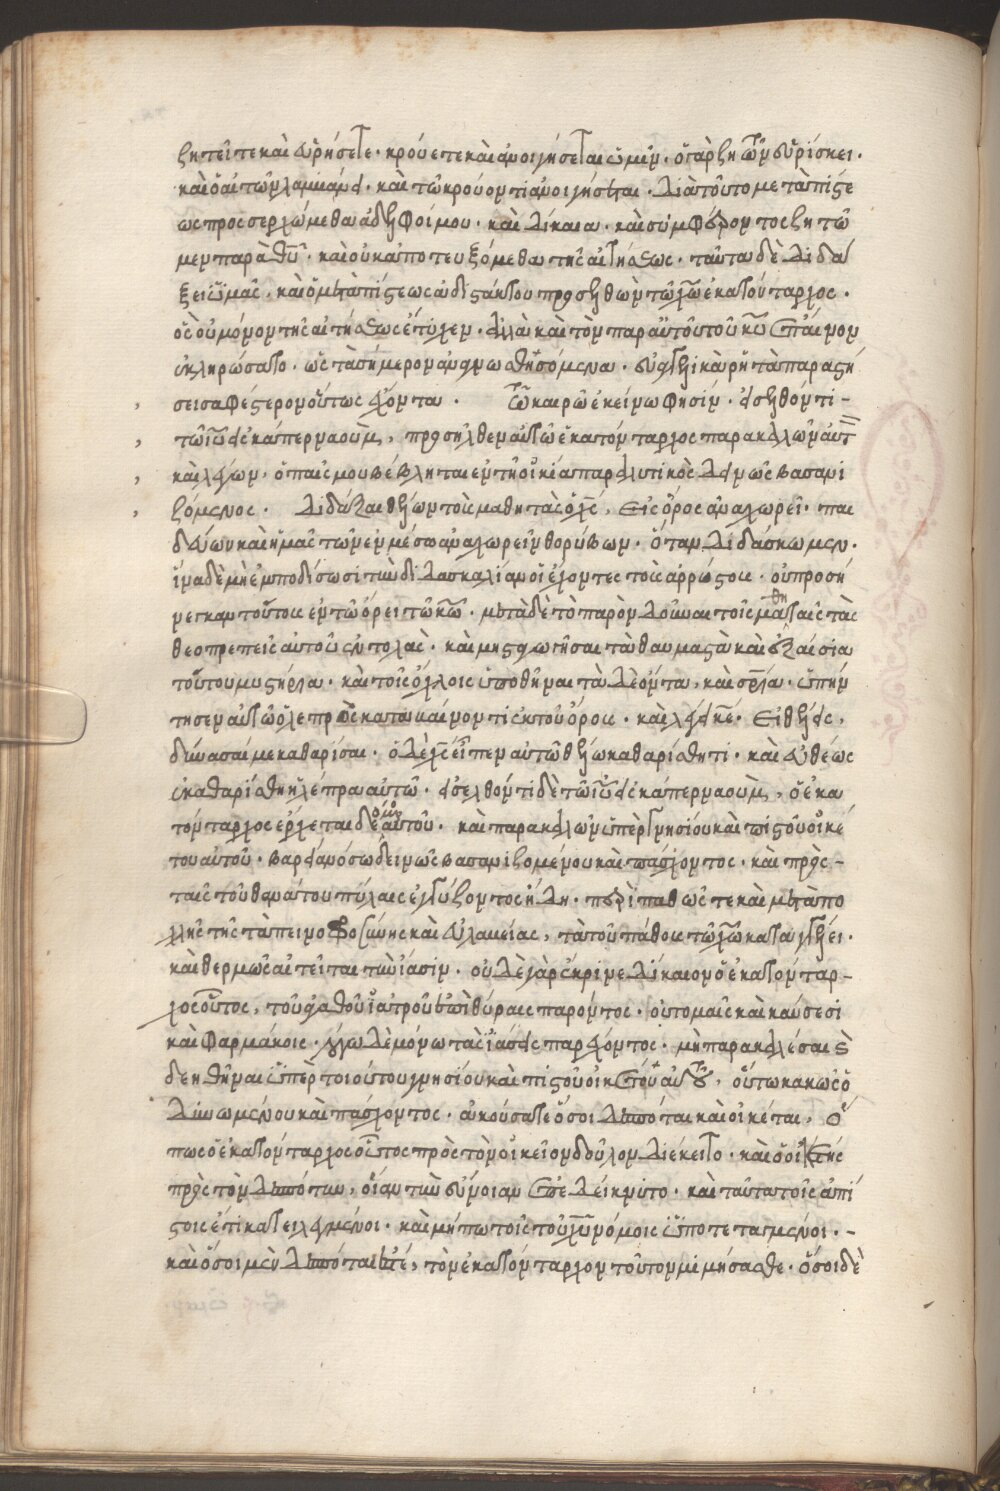 ζητεῖτε καὶ εὑρήσετε· κρούετε καὶ ἀνοιγήσεται ὑμῖν· ὁ γὰρ ζητῶν εὑρίσκει·
καὶ ὁ αἰτῶν λαμβάνει· καὶ τῷ κρούοντι ἀνοιγήσεται· διὰ τοῦτο μετὰ πίστε
ως προσερχώμεθα ἀδελφοί μου· καὶ δίκαια· καὶ συμφέροντος ζητῶ
μεν παρὰ θυ· καὶ οὐκ ἀποτευξόμεθα τῆς αἰτήσεως· ταῦτα δὲ διδά
ξει ὑμᾶς, καὶ ὁ μετὰ πίστεως ἀδιστάκτου προσελθὼν τῷ χῶ ἑκατόνταρχος·
ὃς οὐ μόνον τῆς αἰτήσεως ἔτυχεν· ἀλλὰ καὶ τὸν παρ' αὐτοῦ τοῦ κυ ἔπαινον
ἐκληρώσατο· ὡς τὰ σήμερον ἀναγνωσθησόμενα· εὐαγγελικὰ ῥητὰ παραστή
σει σαφέστερον οὕτως ἔχοντα. Τῶ καιρῶ ἐκείνω φησίν· εἰσελθόντι
τῶ ιυ εἰς καπερναοὺμ, προσῆλθεν αὐτῶ ἑκατόνταρχος παρακαλῶν αὐτ
καὶ λέγων· ὁ παῖς μου βέβληται ἐν τῇ οἰκία παραλυτικὸς δεινῶς βασανι
ζόμενος. διδάξαι θέλων τοὺς μαθητὰς ὁ χς, εἰς ὄρος ἀναχωρεῖ· παι
δεύων καὶ ἡμᾶς τῶν ἐν μέσω ἀναχωρεῖν θορύβων· ὅταν διδάσκωμεν·
ἵνα δὲ μὴ ἐμποδίσωσι τὴν διδασκαλίαν οἱ ἔχοντες τοὺς ἀρρώστους· οὐ προσή
νεγκαν τούτους ἐν τῶ ὄρει τῶ κω· μετὰ δὲ τὸ παρὸν δοῦναι τοῖς μαθηταῖς τὰς
θεοπρεπεῖς αὐτοῦ ἐντολὰς· καὶ μυσταγωγῆσαι τὰ θαυμαστὰ καὶ ἐξαίσια
τούτου μυστήρια· καὶ τοῖς ὄχλοις ὑποθῆναι τὰ δέοντα, καὶ σρια· ὑπήν
τησεν αὐτῶ ὁ λεπρὸς καταβαίνοντι ἐκ τοῦ ὄρους· καὶ λέγει κε· Εἰ θέλεις,
δύνασαί με καθαρίσαι· ὁ δὲ χς εἶπεν αὐτῶ θέλω καθαρίσθητι· καὶ εὐθέως
ἐκαθαρίσθη ἡ λέπρα αὐτῶ· εἰσελθόντι δὲ τῶ ιυ εἰς καπερναοὺμ, ὁ ἑκα
τόνταρχος ἔρχεται δεόμενος αὐτοῦ· καὶ παρακαλῶν ὑπὲρ γνησίου καὶ πιστοῦ οἰκέ
του αὐτοῦ· βαρεῖα νόσω δεινῶς βασανιζομένου καὶ πάσχοντος· καὶ πρὸς
ταῖς τοῦ θανάτου πύλαις ἐγγύζοντος ἤδη· περιπαθῶς τε καὶ μετὰ πο
λλῆς τῆς ταπεινοφροσύνης καὶ εὐλαβείας, τὰ τοῦ πάθους τῶ χω καταγγέλει·
καὶ θερμῶς αἰτεῖται τὴν ἴασιν· οὐδὲ γὰρ ἔκρινε δίκαιον ὁ ἑκατόνταρ
χος οὗτος, τοῦ ἀγαθοῦ ἰατροῦ ἐπὶ θύραις παρόντος· οὐ τομαῖς καὶ καύσεσι
καὶ φαρμάκοις· λόγω δὲ μόνω τὰς ἰάσεις παρέχοντος· μὴ παρακαλέσαι
δεηθῆναι ὑπὲρ τοιούτου γνησίου καὶ πιστοῦ οἰκέτου αὐτοῦ, οὕτω κακῶς ὀ
δυνωμένου καὶ πάσχοντος· ἀκούσατε ὅσοι δεσπόται καὶ οἰκέται, ὅ
πως ὁ ἑκατόνταρχος οὗτος πρὸς τὸν οἰκεῖον δοῦλον διέκειτο· καὶ ὁ οἰκέτης
πρὸς τὸν δεσπότην, οἵαν τὴν εὔνοιαν ἐπεδείκνυτο· καὶ ταῦτα τοῖς ἀπί
στοις ἔτι κατειλεγμένοι· καὶ μήπω τοῖς τοῦ χυ νόμοις ὑποτεταγμένοι·
καὶ ὅσοι μὲν δεσπόται ἐστέ, τὸν ἑκατόνταρχον τοῦτον μιμήσασθε· ὅσοι δὲ